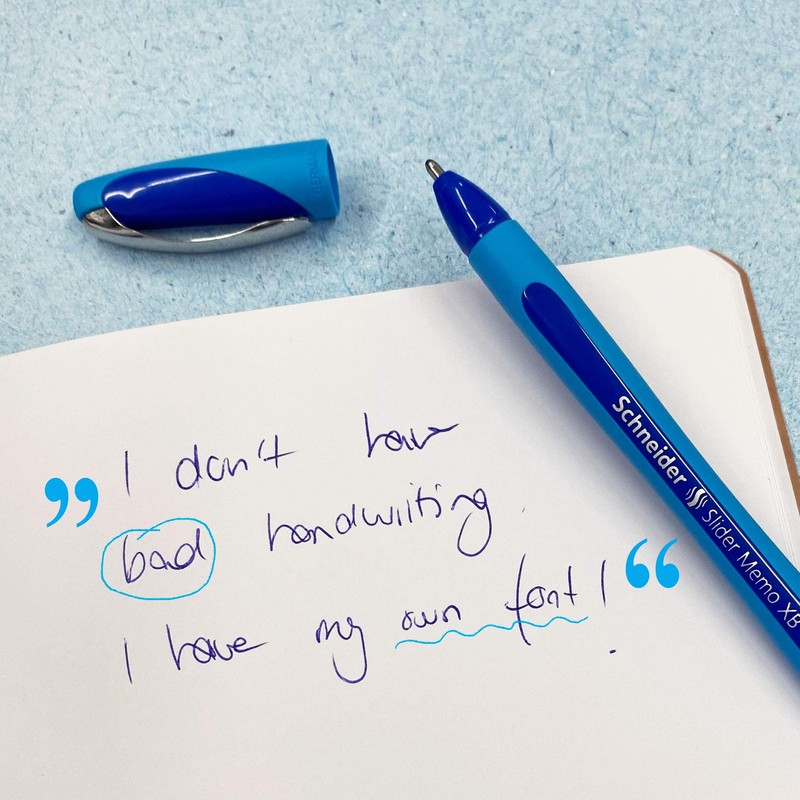 „I don't have
bad handwriting
I have my own font!“
Schneider Slider Memo XB